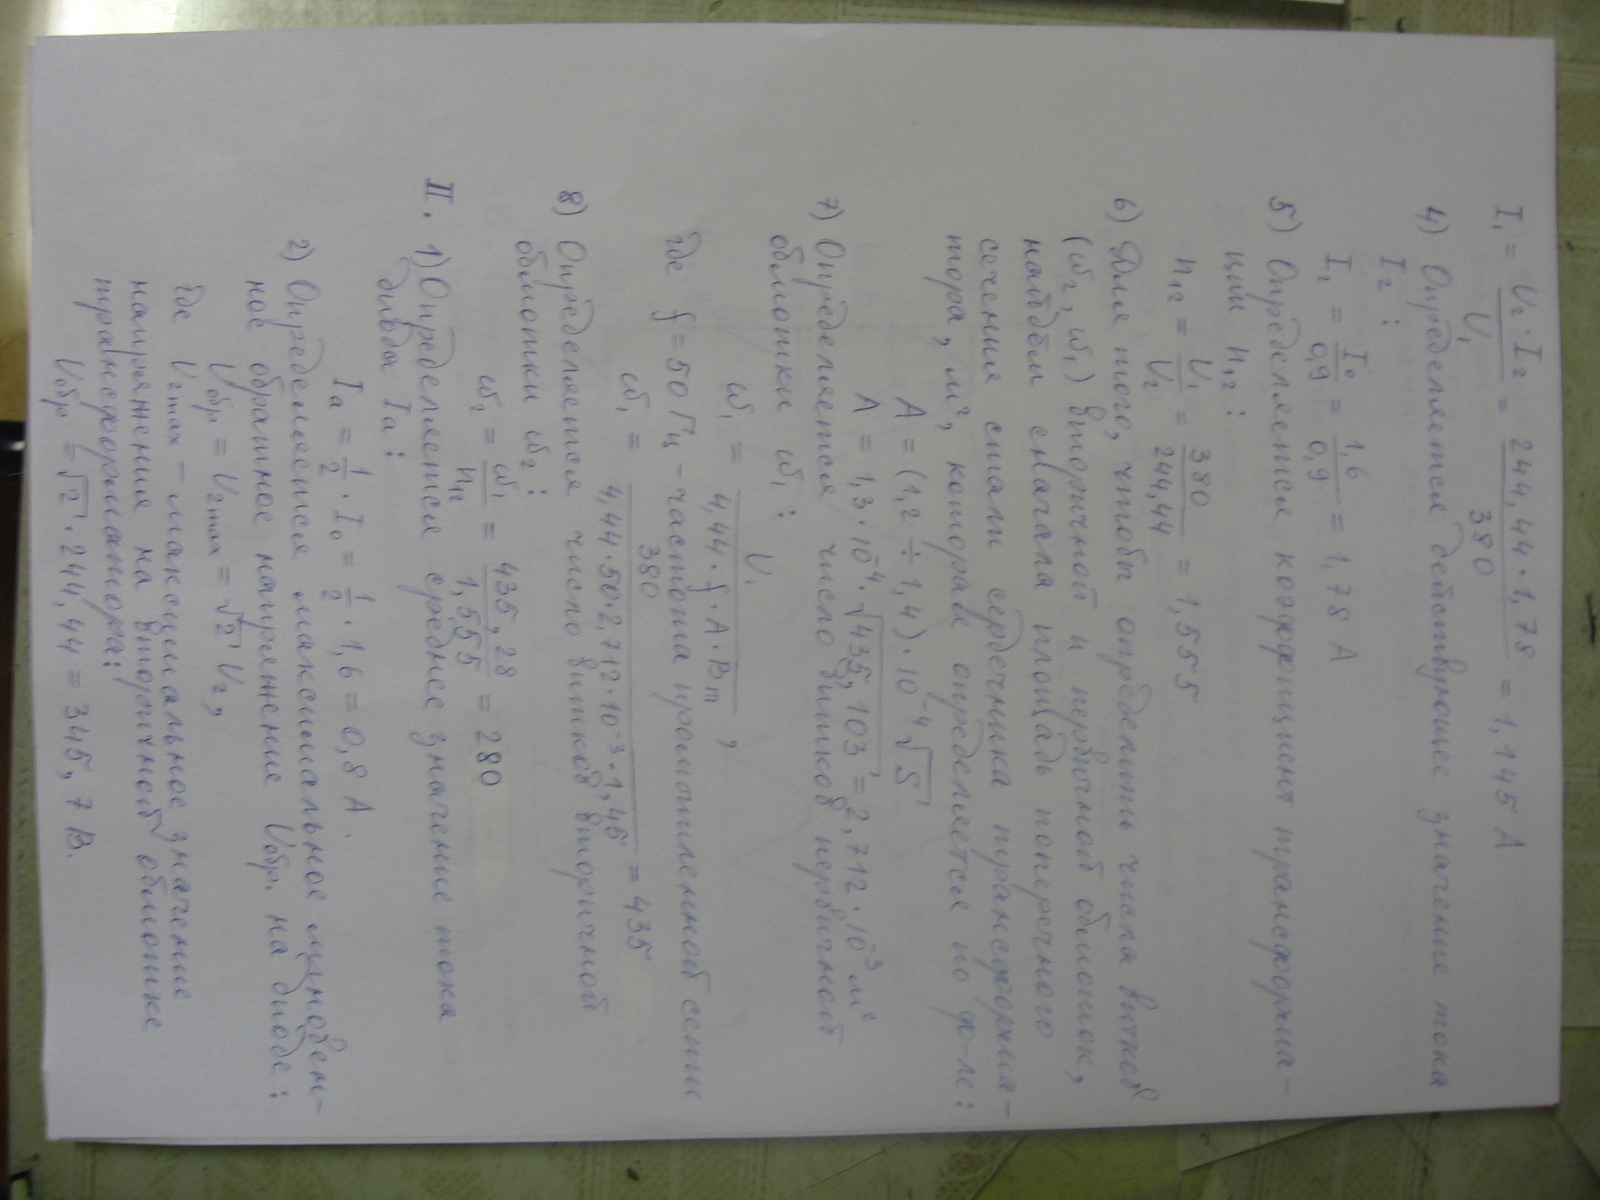 I₁ = U₂·I₂ / U₁ = 244,44·1,78 / 380 = 1,145 А
4) Определяется действующее значение тока
I₂:
I₂ = I₀ / 0,9 = 1,6 / 0,9 = 1,78 А
5) Определяется коэффициент трансформа-
ции n₁₂:
n₁₂ = U₁ / U₂ = 380 / 244,44 = 1,555
6) Для того, чтобы определить числа витков
(ω₂, ω₁) вторичной и первичной обмоток,
найдём сначала площадь поперечного
сечения стали сердечника трансформа-
тора, м², которая определяется по ф-ле:
A = (1,2 ÷ 1,4)·10⁻⁴ √S
A = 1,3·10⁻⁴·√435,103 = 2,712·10⁻³ м²
7) Определяется число витков первичной
обмотки ω₁:
ω₁ = U₁ / 4,44·f·A·Bm ,
где f = 50 Гц – частота промышленной сети
ω₁ = 380 / 4,44·50·2,712·10⁻³·1,45 = 435
8) Определяется число витков вторичной
обмотки ω₂:
ω₂ = ω₁ / n₁₂ = 435,28 / 1,555 = 280
II. 1) Определяется среднее значение тока
диода Iа:
Iа = 1/2 · I₀ = 1/2 · 1,6 = 0,8 А.
2) Определяется максимальное мгновен-
ное обратное напряжение Uобр. на диоде:
Uобр = U₂max = √2 U₂,
где U₂max – максимальное значение
напряжения на вторичной обмотке
трансформатора:
Uобр = √2 · 244,44 = 345,7 В.